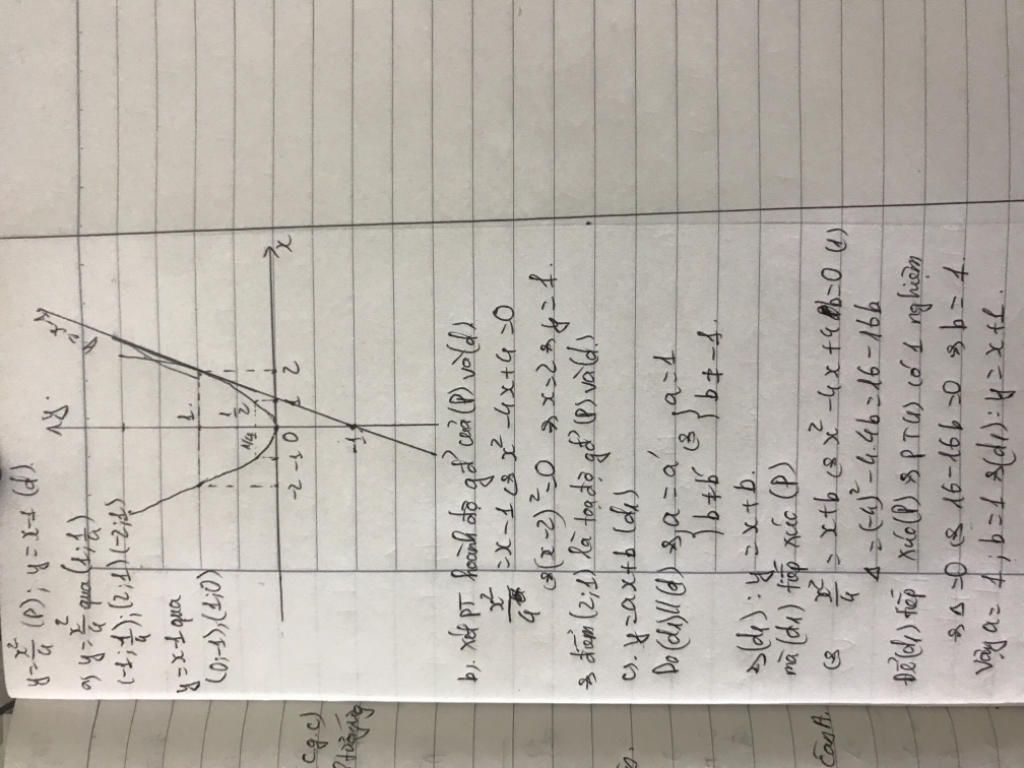 y = x²/4 (P); y = x-1 (d)
a, y = x²/4 qua (1; 1/4)
(-1; 1/4); (2; 1) (-2; 1)
y = x-1 qua
(0; -1), (1; 0)
y
1
1/2
1/4
-2 -1 0 1 2
x
-1
b, xét PT hoành độ gđ của (P) và (d)
x²/4 = x - 1 ⇔ x² - 4x + 4 = 0
⇔ (x-2)² = 0 ⇒ x = 2 ⇒ y = 1.
⇒ điểm (2; 1) là toạ độ gđ (P) và (d)
c, y = ax + b (d1)
Do (d1) // (d) ⇒ { a = a' b ≠ b' ⇔ { a = 1 b ≠ -1.
⇒ (d1): y = x + b.
mà (d1) tiếp xúc (P)
⇔ x²/4 = x + b ⇔ x² - 4x + 4b = 0 (1)
Δ = (-4)² - 4.4b = 16 - 16b
Để (d1) tiếp xúc (P) ⇒ PT(1) có 1 nghiệm
⇒ Δ = 0 ⇔ 16 - 16b = 0 ⇒ b = 1
Vậy a = 1; b = 1 ⇒ (d1): y = x + 1.
c.g.c)
tương